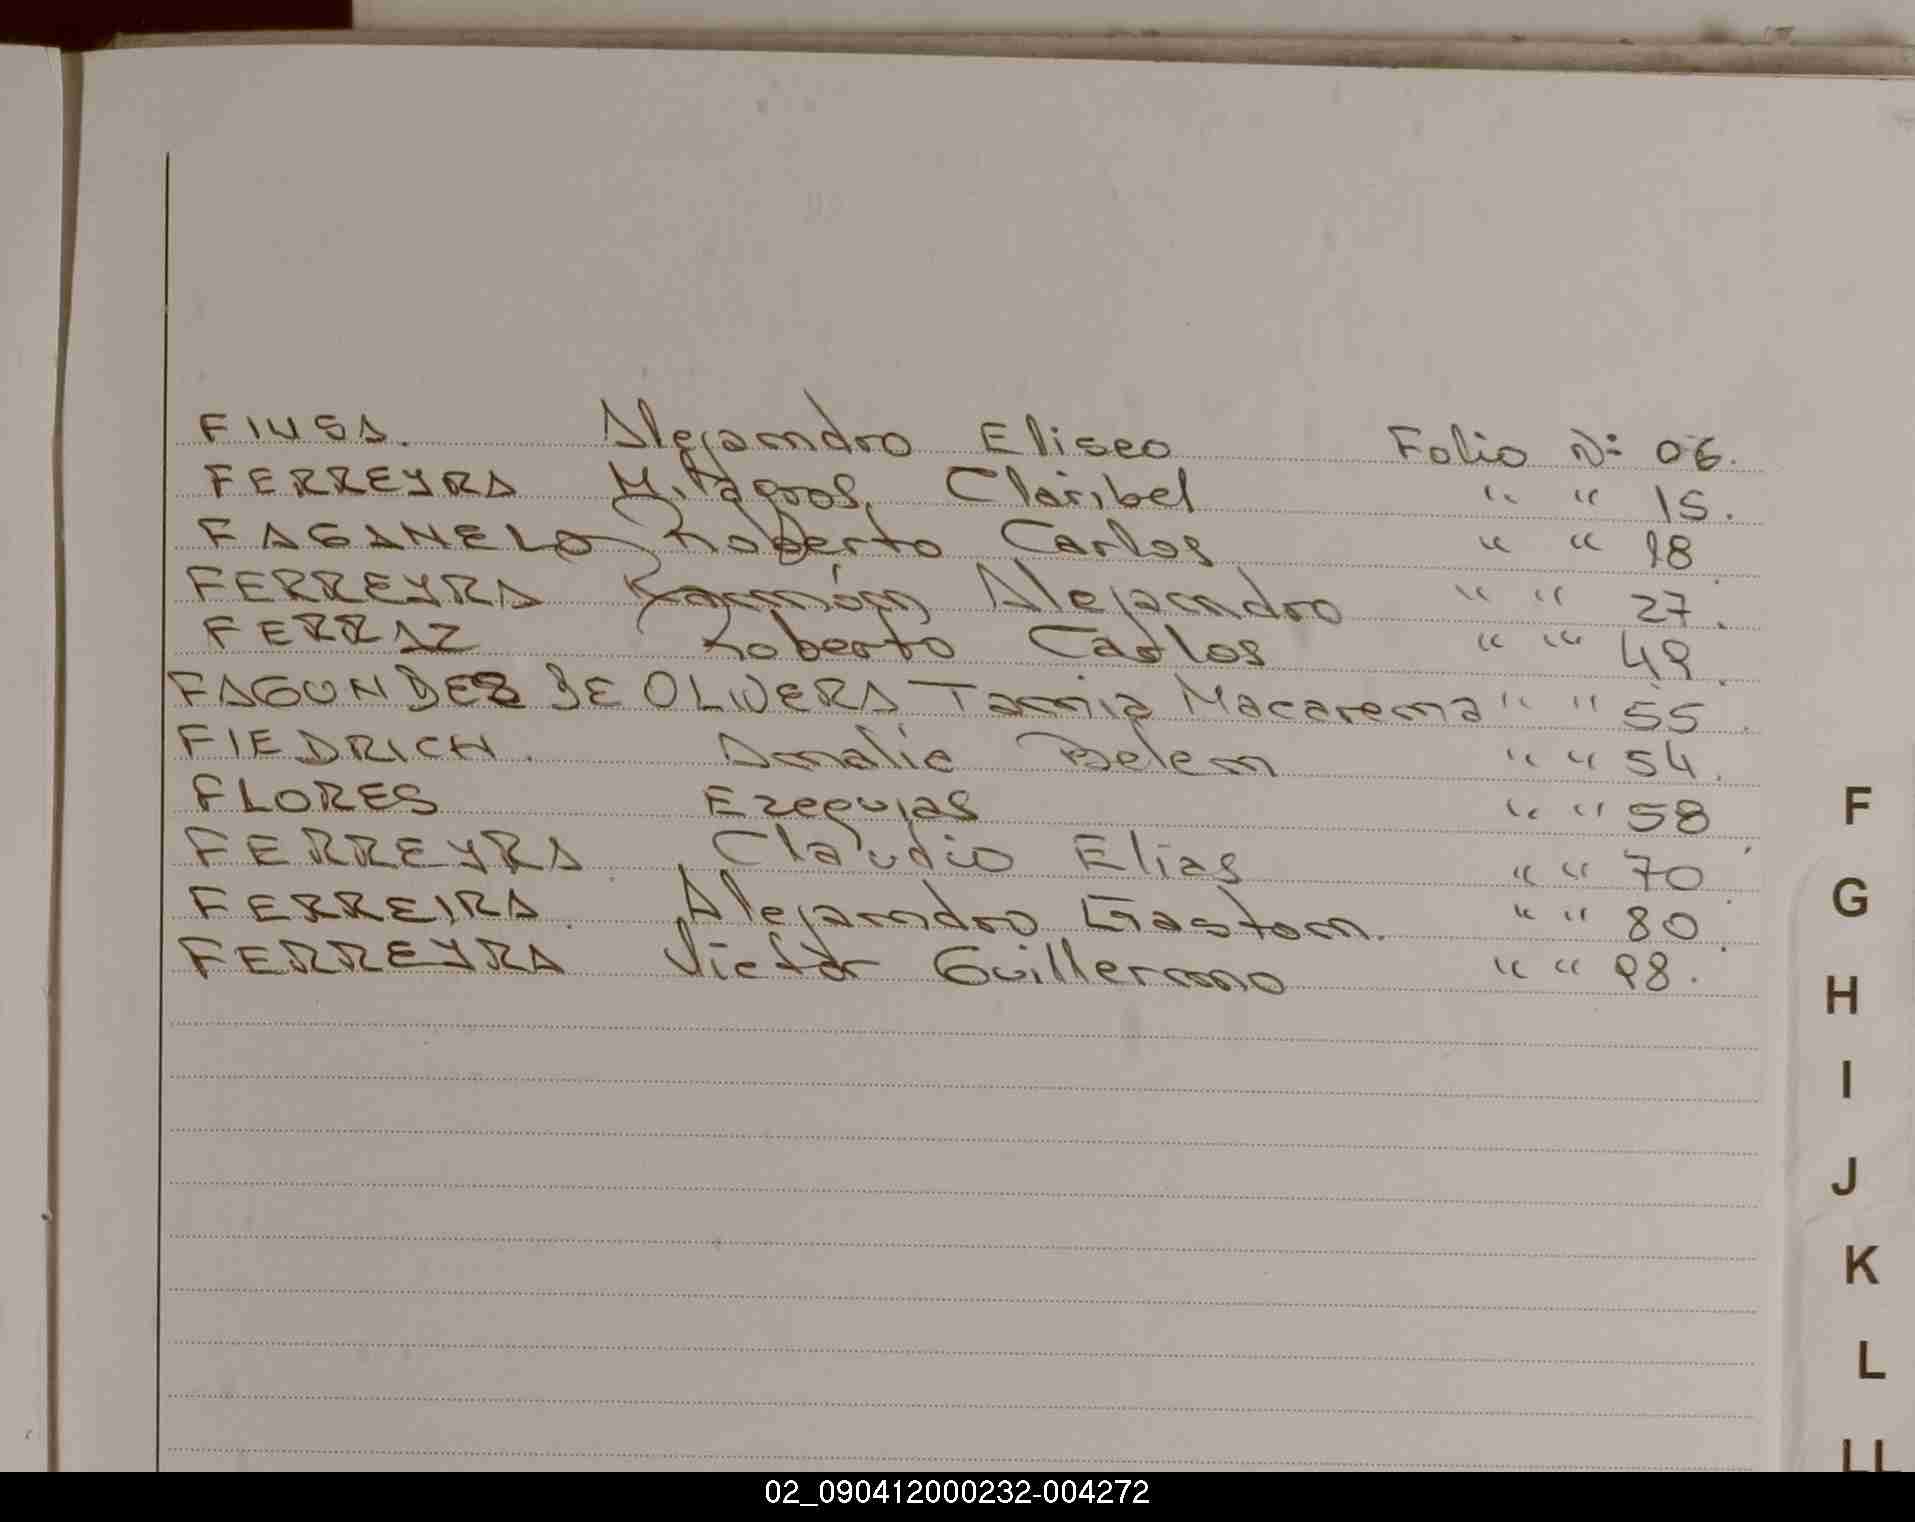 FIUSA. Alejandro Eliseo Folio N: 06.
FERREYRA Milagros Claribel " " 15.
FAGANELO Roberto Carlos " " 18
FERREYRA Ramón Alejandro " " 27.
FERRAZ Roberto Carlos " " 49.
FAGUNDEZ DE OLIVERA Tamia Macarena " " 55.
FIEDRICH. Amalie Belem " " 54.
FLORES Ezequias " " 58
FERREYRA. Claudio Elias " " 70
FERREIRA. Alejandro Gaston. " " 80
FERREYRA Victor Guillermo " " 98.
F
G
H
I
J
K
L
LL
02_090412000232-004272